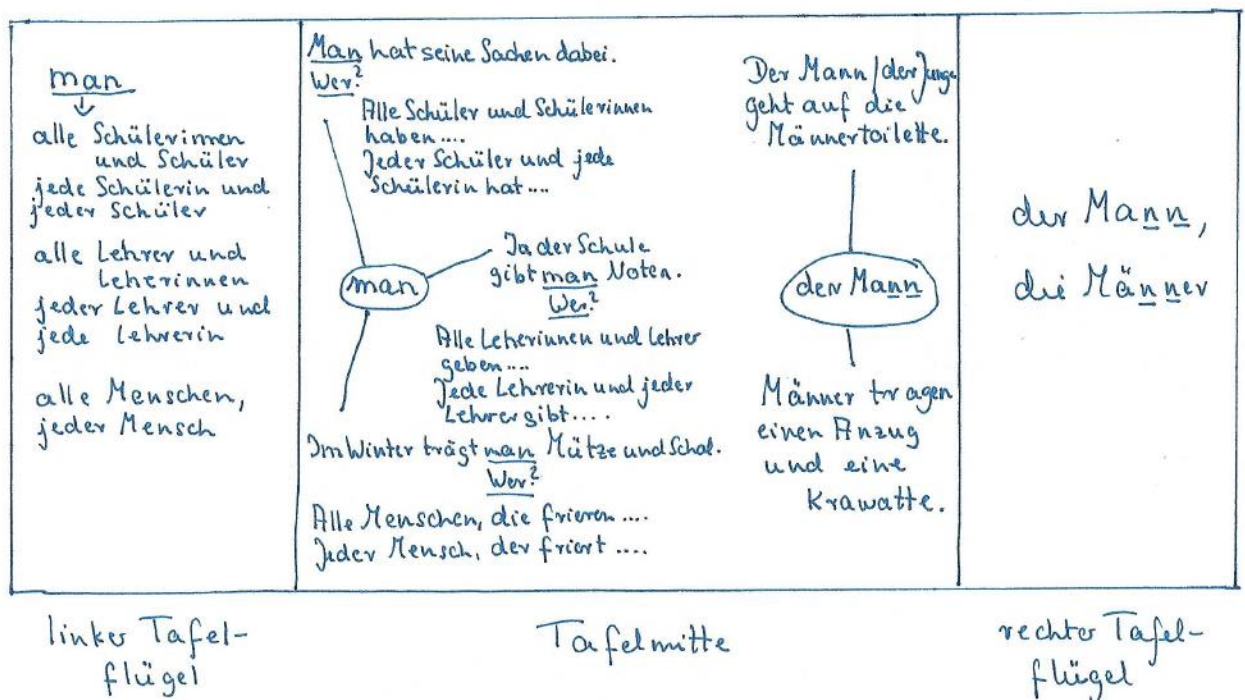 man
alle Schülerinnen
und Schüler
jede Schülerin und
jeder Schüler
alle Lehrer und
Leherinnen
jeder Lehrer und
jede Lehrerin
alle Menschen,
jeder Mensch
Man hat seine Sachen dabei.
Wer?
Alle Schüler und Schülerinnen
haben....
Jeder Schüler und jede
Schülerin hat....
man
In der Schule
gibt man Noten.
Wer?
Alle Leherinnen und Lehrer
geben....
Jede Lehrerin und jeder
Lehrer gibt....
Im Winter trägt man Mütze und Schal.
Wer?
Alle Menschen, die frieren....
Jeder Mensch, der friert....
Der Mann/der Junge
geht auf die
Männertoilette.
der Mann
Männer tragen
einen Anzug
und eine
Krawatte.
der Mann,
die Männer
linker Tafel-
flügel
Tafelmitte
rechter Tafel-
flügel